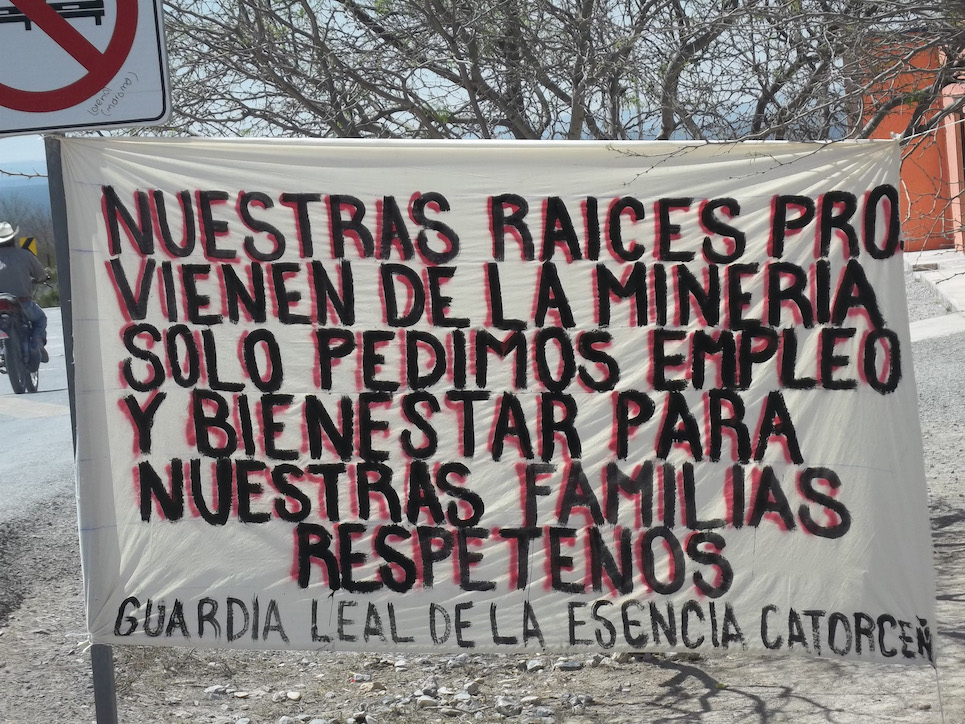 NUESTRAS RAICES PRO
VIENEN DE LA MINERIA
SOLO PEDIMOS EMPLEO
Y BIENESTAR PARA
NUESTRAS FAMILIAS
RESPETENOS
GUARDIA LEAL DE LA ESENCIA CATORCEÑ